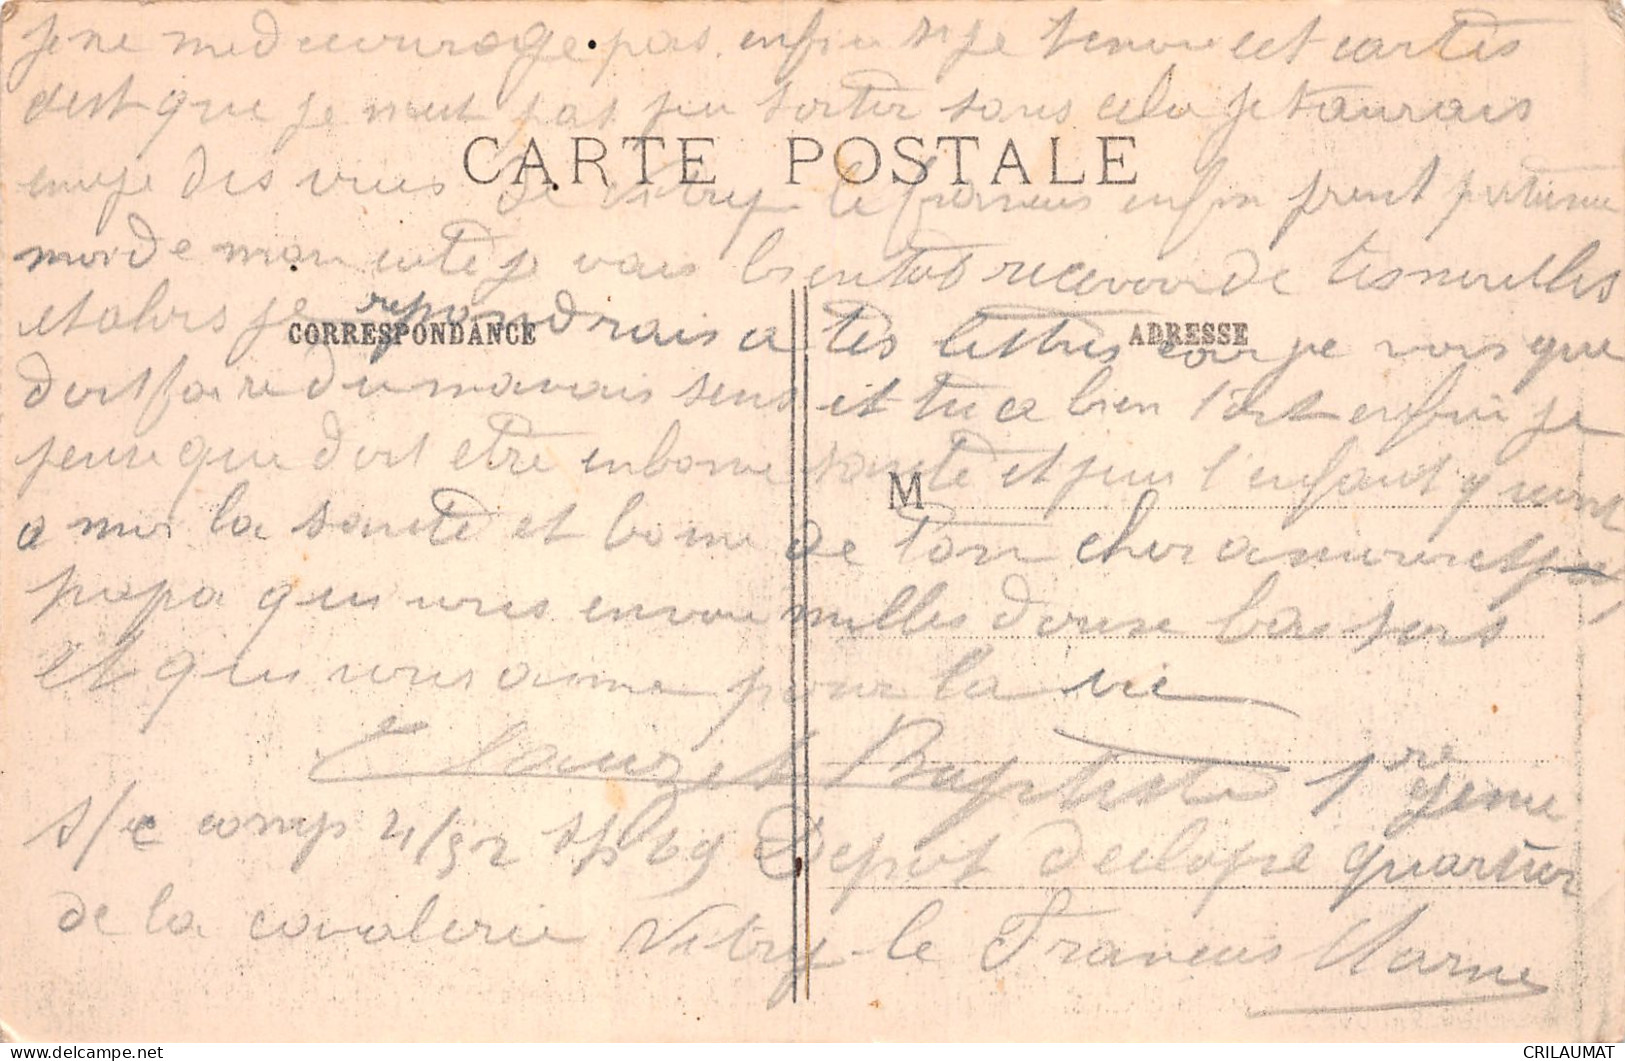 je ne me decourage pas enfin si je tenvoie cet cartes
cest que je neut pas peu sortir sans cela je taurais
envoye des vues de Vitry le francois enfin prent patience
CARTE POSTALE
moi de mon cote je vais bientot recevoir de tes nouvelles
et alors je repondrais a tes lettres car je vois que
CORRESPONDANCE ADRESSE
doit faire du mauvais sens et tu a bien tort enfin je
pense que doit etre en bonne sante et puis l'enfant quant
M
a moi la sante et bonne de ton cher amiret
papa qui vous envoie milles douse baisers
et qui vous aime pour la vie
Clauzet Baptiste 1re genie
s/c comp 4/32 sp 69 Depot declope quartier
de la cavalerie Vitry-le Francois Marne
CRILAUMAT